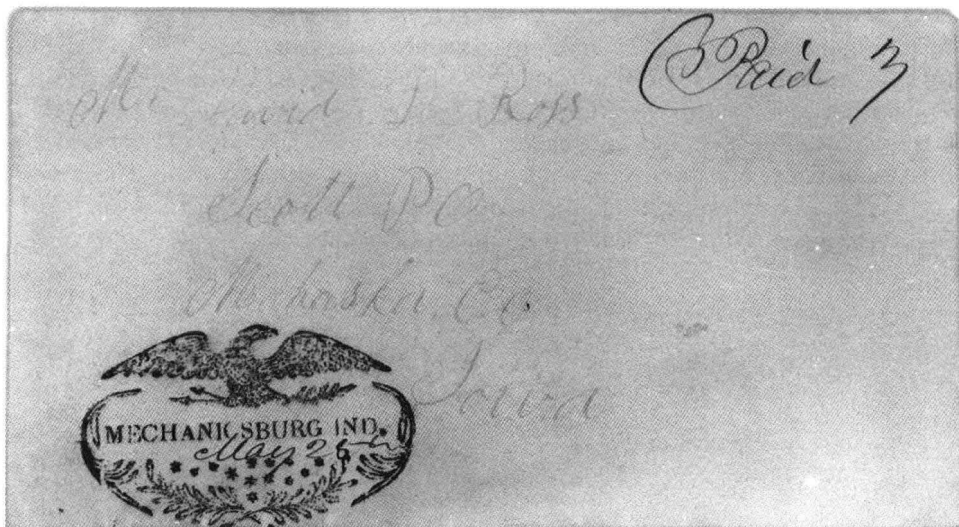 Paid 3
Mr David P. Ross
Scott P O
Mahaska Co
Iowa
MECHANICSBURG IND.
May 25th